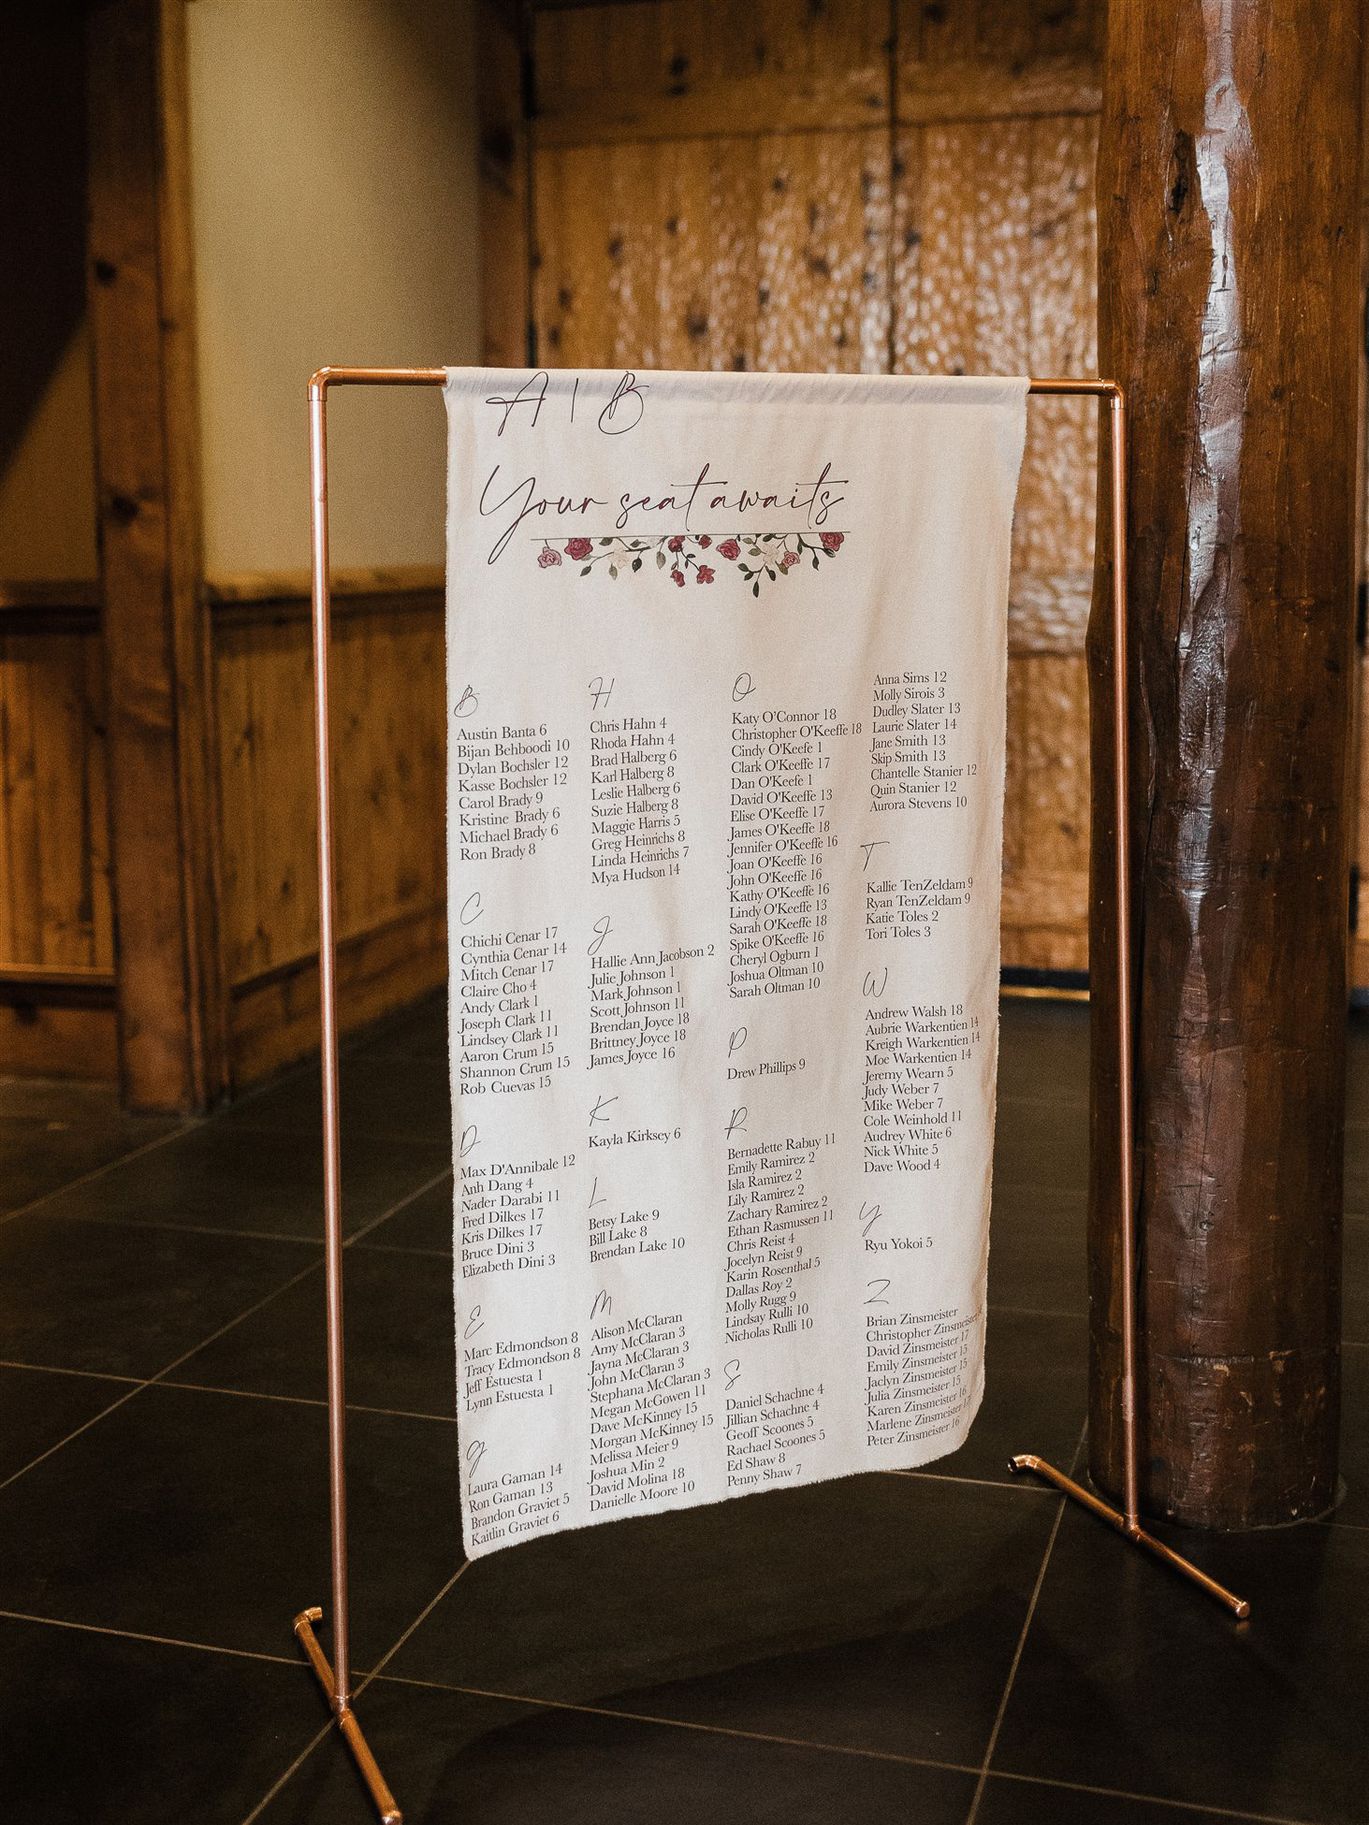 A | B
Your seat awaits
B
Austin Banta 6
Bijan Behboodi 10
Dylan Bochsler 12
Kasse Bochsler 12
Carol Brady 9
Kristine Brady 6
Michael Brady 6
Ron Brady 8
C
Chichi Cenar 17
Cynthia Cenar 14
Mitch Cenar 17
Claire Cho 4
Andy Clark 1
Joseph Clark 11
Lindsey Clark 11
Aaron Crum 15
Shannon Crum 15
Rob Cuevas 15
D
Max D'Annibale 12
Anh Dang 4
Nader Darabi 11
Fred Dilkes 17
Kris Dilkes 17
Bruce Dini 3
Elizabeth Dini 3
E
Marc Edmondson 8
Tracy Edmondson 8
Jeff Estuesta 1
Lynn Estuesta 1
g
Laura Gaman 14
Ron Gaman 13
Brandon Graviet 5
Kaitlin Graviet 6
H
Chris Hahn 4
Rhoda Hahn 4
Brad Halberg 6
Karl Halberg 8
Leslie Halberg 6
Suzie Halberg 8
Maggie Harris 5
Greg Heinrichs 8
Linda Heinrichs 7
Mya Hudson 14
J
Hallie Ann Jacobson 2
Julie Johnson 1
Mark Johnson 1
Scott Johnson 11
Brendan Joyce 18
Brittney Joyce 18
James Joyce 16
K
Kayla Kirksey 6
L
Betsy Lake 9
Bill Lake 8
Brendan Lake 10
M
Alison McClaran
Amy McClaran 3
Jayna McClaran 3
John McClaran 3
Stephana McClaran 3
Megan McGowen 11
Dave McKinney 15
Morgan McKinney 15
Melissa Meier 9
Joshua Min 2
David Molina 18
Danielle Moore 10
O
Katy O'Connor 18
Christopher O'Keeffe 18
Cindy O'Keefe 1
Clark O'Keeffe 17
Dan O'Keefe 1
David O'Keeffe 13
Elise O'Keeffe 17
James O'Keeffe 18
Jennifer O'Keeffe 16
Joan O'Keeffe 16
John O'Keeffe 16
Kathy O'Keeffe 16
Lindy O'Keeffe 13
Sarah O'Keeffe 18
Spike O'Keeffe 16
Cheryl Ogburn 1
Joshua Oltman 10
Sarah Oltman 10
P
Drew Phillips 9
R
Bernadette Rabuy 11
Emily Ramirez 2
Isla Ramirez 2
Lily Ramirez 2
Zachary Ramirez 2
Ethan Rasmussen 11
Chris Reist 4
Jocelyn Reist 9
Karin Rosenthal 5
Dallas Roy 2
Molly Rugg 9
Lindsay Rulli 10
Nicholas Rulli 10
S
Daniel Schachne 4
Jillian Schachne 4
Geoff Scoones 5
Rachael Scoones 5
Ed Shaw 8
Penny Shaw 7
Anna Sims 12
Molly Sirois 3
Dudley Slater 13
Laurie Slater 14
Jane Smith 13
Skip Smith 13
Chantelle Stanier 12
Quin Stanier 12
Aurora Stevens 10
T
Kallie TenZeldam 9
Ryan TenZeldam 9
Katie Toles 2
Tori Toles 3
W
Andrew Walsh 18
Aubrie Warkentien 14
Kreigh Warkentien 14
Moe Warkentien 14
Jeremy Wearn 5
Judy Weber 7
Mike Weber 7
Cole Weinhold 11
Audrey White 6
Nick White 5
Dave Wood 4
y
Ryu Yokoi 5
Z
Brian Zinsmeister
Christopher Zinsmeister
David Zinsmeister 17
Emily Zinsmeister 15
Jaclyn Zinsmeister 15
Julia Zinsmeister 15
Karen Zinsmeister 16
Marlene Zinsmeister
Peter Zinsmeister 16